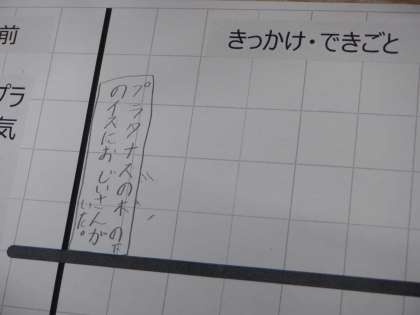 きっかけ・できごと
前
プラ
気
プラタナスの木の下
のイスにおじいさんが
いた。